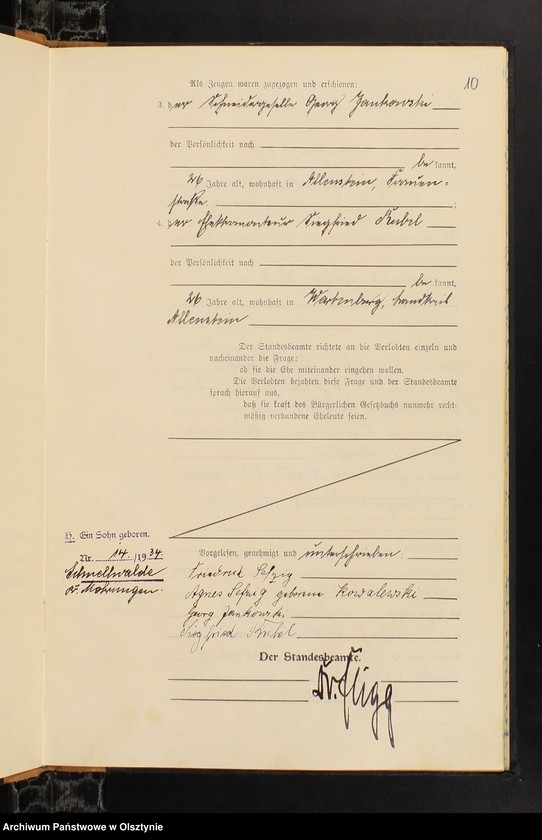 10
Als Zeugen waren zugezogen und erschienen:
3. der Schneidergeselle Georg Jankowski
der Persönlichkeit nach
bekannt,
26 Jahre alt, wohnhaft in Allenstein, Frauen-
straße ;
4. der Elektromonteur Siegfried Kubel
der Persönlichkeit nach
bekannt,
26 Jahre alt, wohnhaft in Wartenburg, Landkreis
Allenstein
Der Standesbeamte richtete an die Verlobten einzeln und
nacheinander die Frage:
ob sie die Ehe miteinander eingehen wollen.
Die Verlobten bejahten diese Frage und der Standesbeamte
sprach hierauf aus,
daß sie kraft des Bürgerlichen Gesetzbuchs nunmehr recht-
mäßig verbundene Eheleute seien.
Ein Sohn geboren.
Nr. 14. /1934.
Schnellwalde
Kr. Mohrungen.
Vorgelesen, genehmigt und unterschrieben:
Friedrich
Agnes geborene Kowalewski
Georg Jankowski
Siegfried Kubel
Der Standesbeamte.
Archiwum Państwowe w Olsztynie